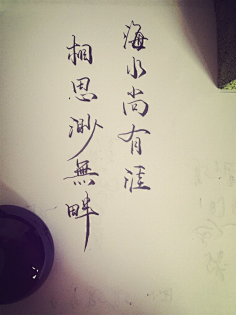 海水尚有涯
相思渺無畔